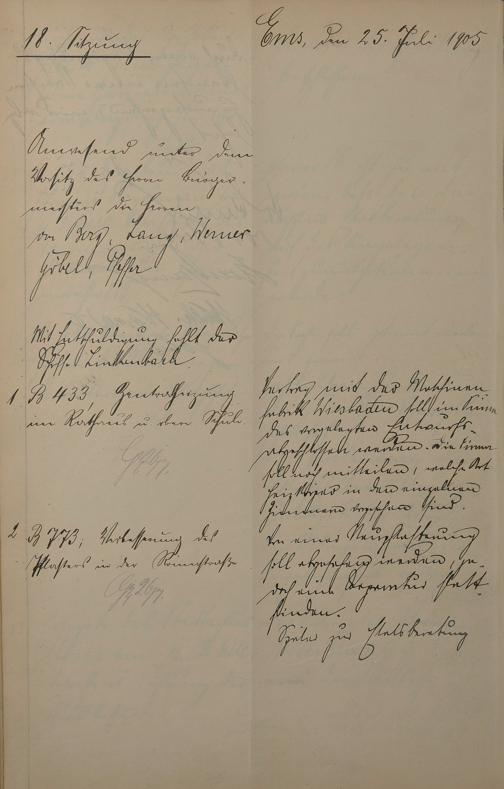 18. Sitzung
Ems, den 25. Juli 1905
Anwesend unter dem
Vorsitz des Herrn Bürger-
meisters die Herren
von Berg, Lang, Werner
Göbel, Pfeffer
Mit Entschuldigung fehlt der
Schöffe Linkenbach
1 B 433 Zentralheizung
im Rathaus u obere Schule
Vertrag mit der Maschinen
fabrik Wiesbaden soll im Sinne
des vorgelegten Entwurfs
abgeschlossen werden. Die Firma
soll noch mitteilen, welche Art
Heizkörper in den einzelnen
Zimmern vorgesehen sind.
2 B 773, Verbesserung des
Pflasters in der Römerstraße
Von einer Neupflasterung
soll abgesehen werden, je-
doch eine Reparatur statt-
finden.
Später zur Etatsberatung